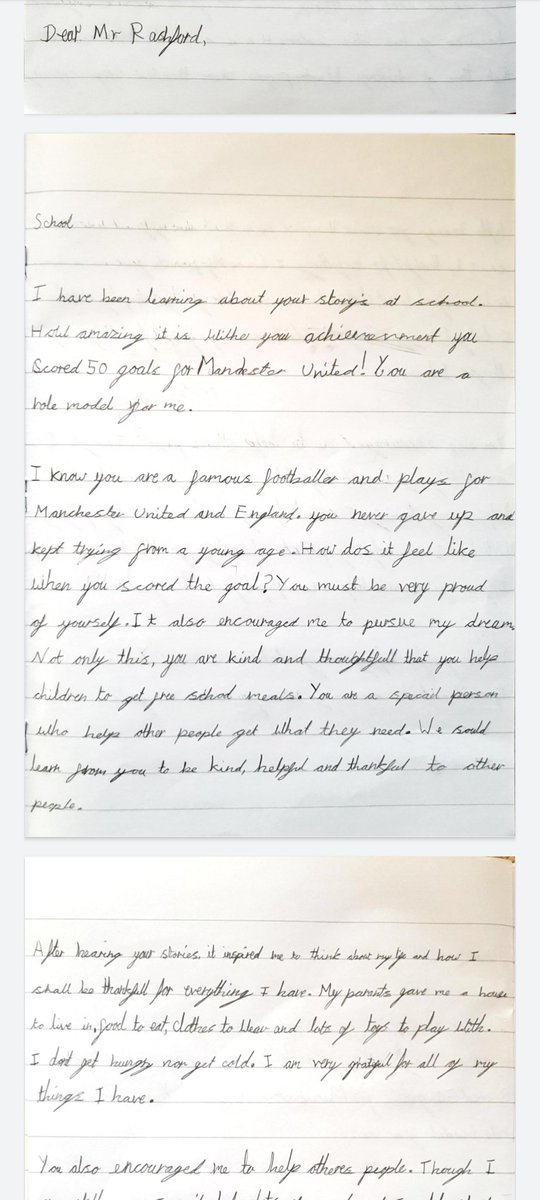 Dear Mr Rashford,
School
I have been learning about your story's at school.
How amazing it is withe you achievenment you
Scored 50 goals for Manchester United! You are a
role model for me.
I know you are a famous footballer and plays for
Manchester United and England. you never gave up and
kept trying from a young age. How dos it feel like
when you scored the goal? You must be very proud
of yourself. It also encouraged me to pursue my dream.
Not only this, you are kind and thoughtfull that you help
children to get free school meals. You are a special person
who helps other people get what they need. We sould
learn from you to be kind, helpful and thankful to other
people.
After hearing your stories, it inspired me to think about my life and how I
shall be thankfull for everything I have. My parents gave me a house
to live in, food to eat, clothes to wear and lots of toys to play with.
I dont get hungry nor get cold. I am very grateful for all of my
things I have.
You also encouraged me to help otheres people. Though I